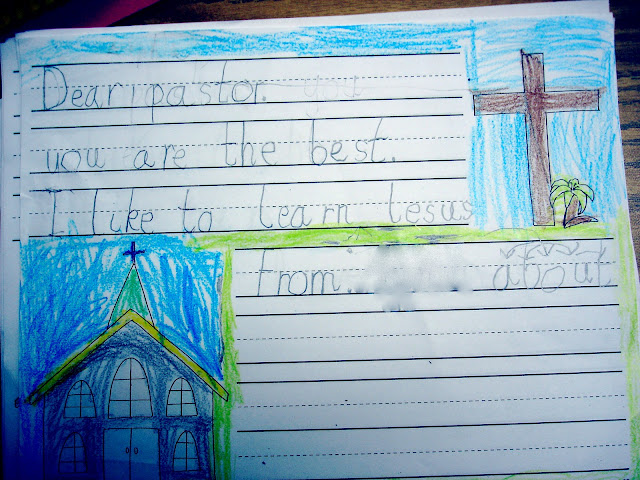 Dear pastor. you
you are the best.
I like to learn Jesus
from. about